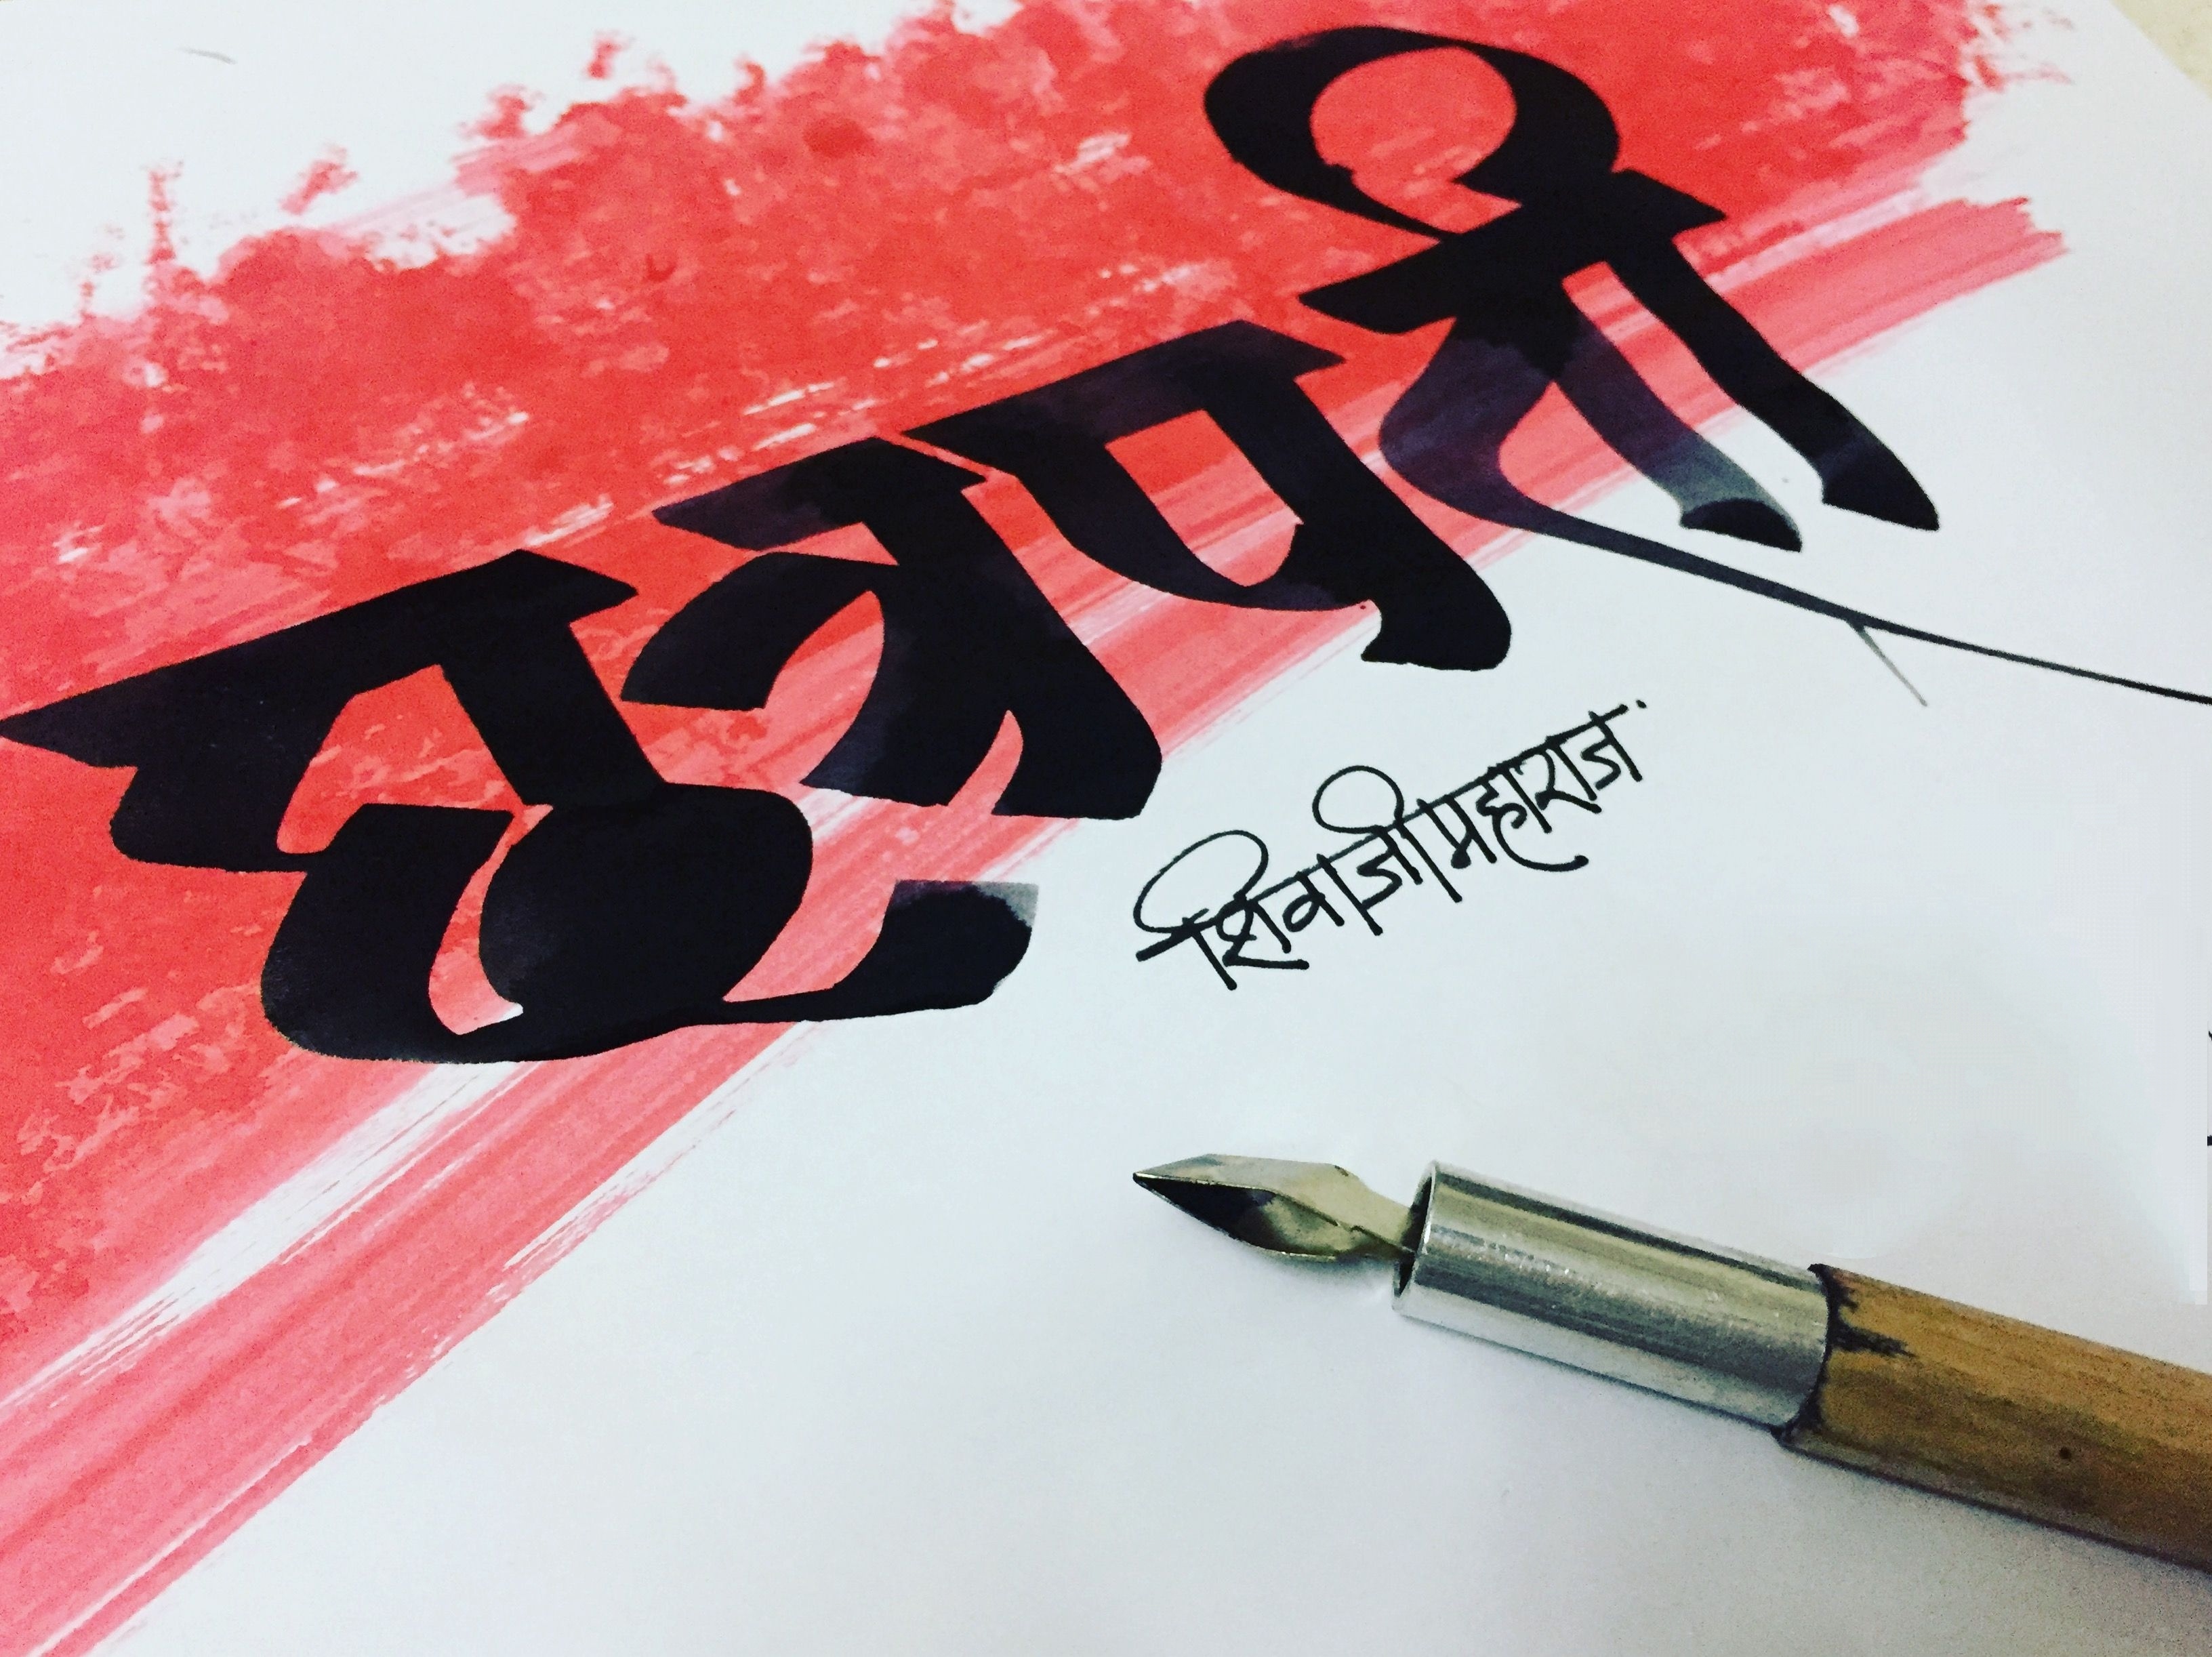 छत्रपती
शिवाजी महाराज.